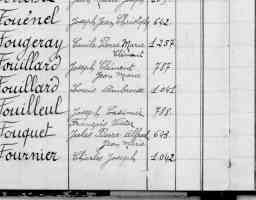 Fouënel Joseph Jean Théodophe 642
Fougeray Emile Pierre Marie 1257
Clément
Fouillard Joseph Clément 787
Jean Marie
Fouillard Louis Ambroise 1041
Fouilleul Joseph Casimir 788
François Victor
Fouquet Jules Pierre Alfred 643
Jean Marie
Fournier Charles Joseph 1042